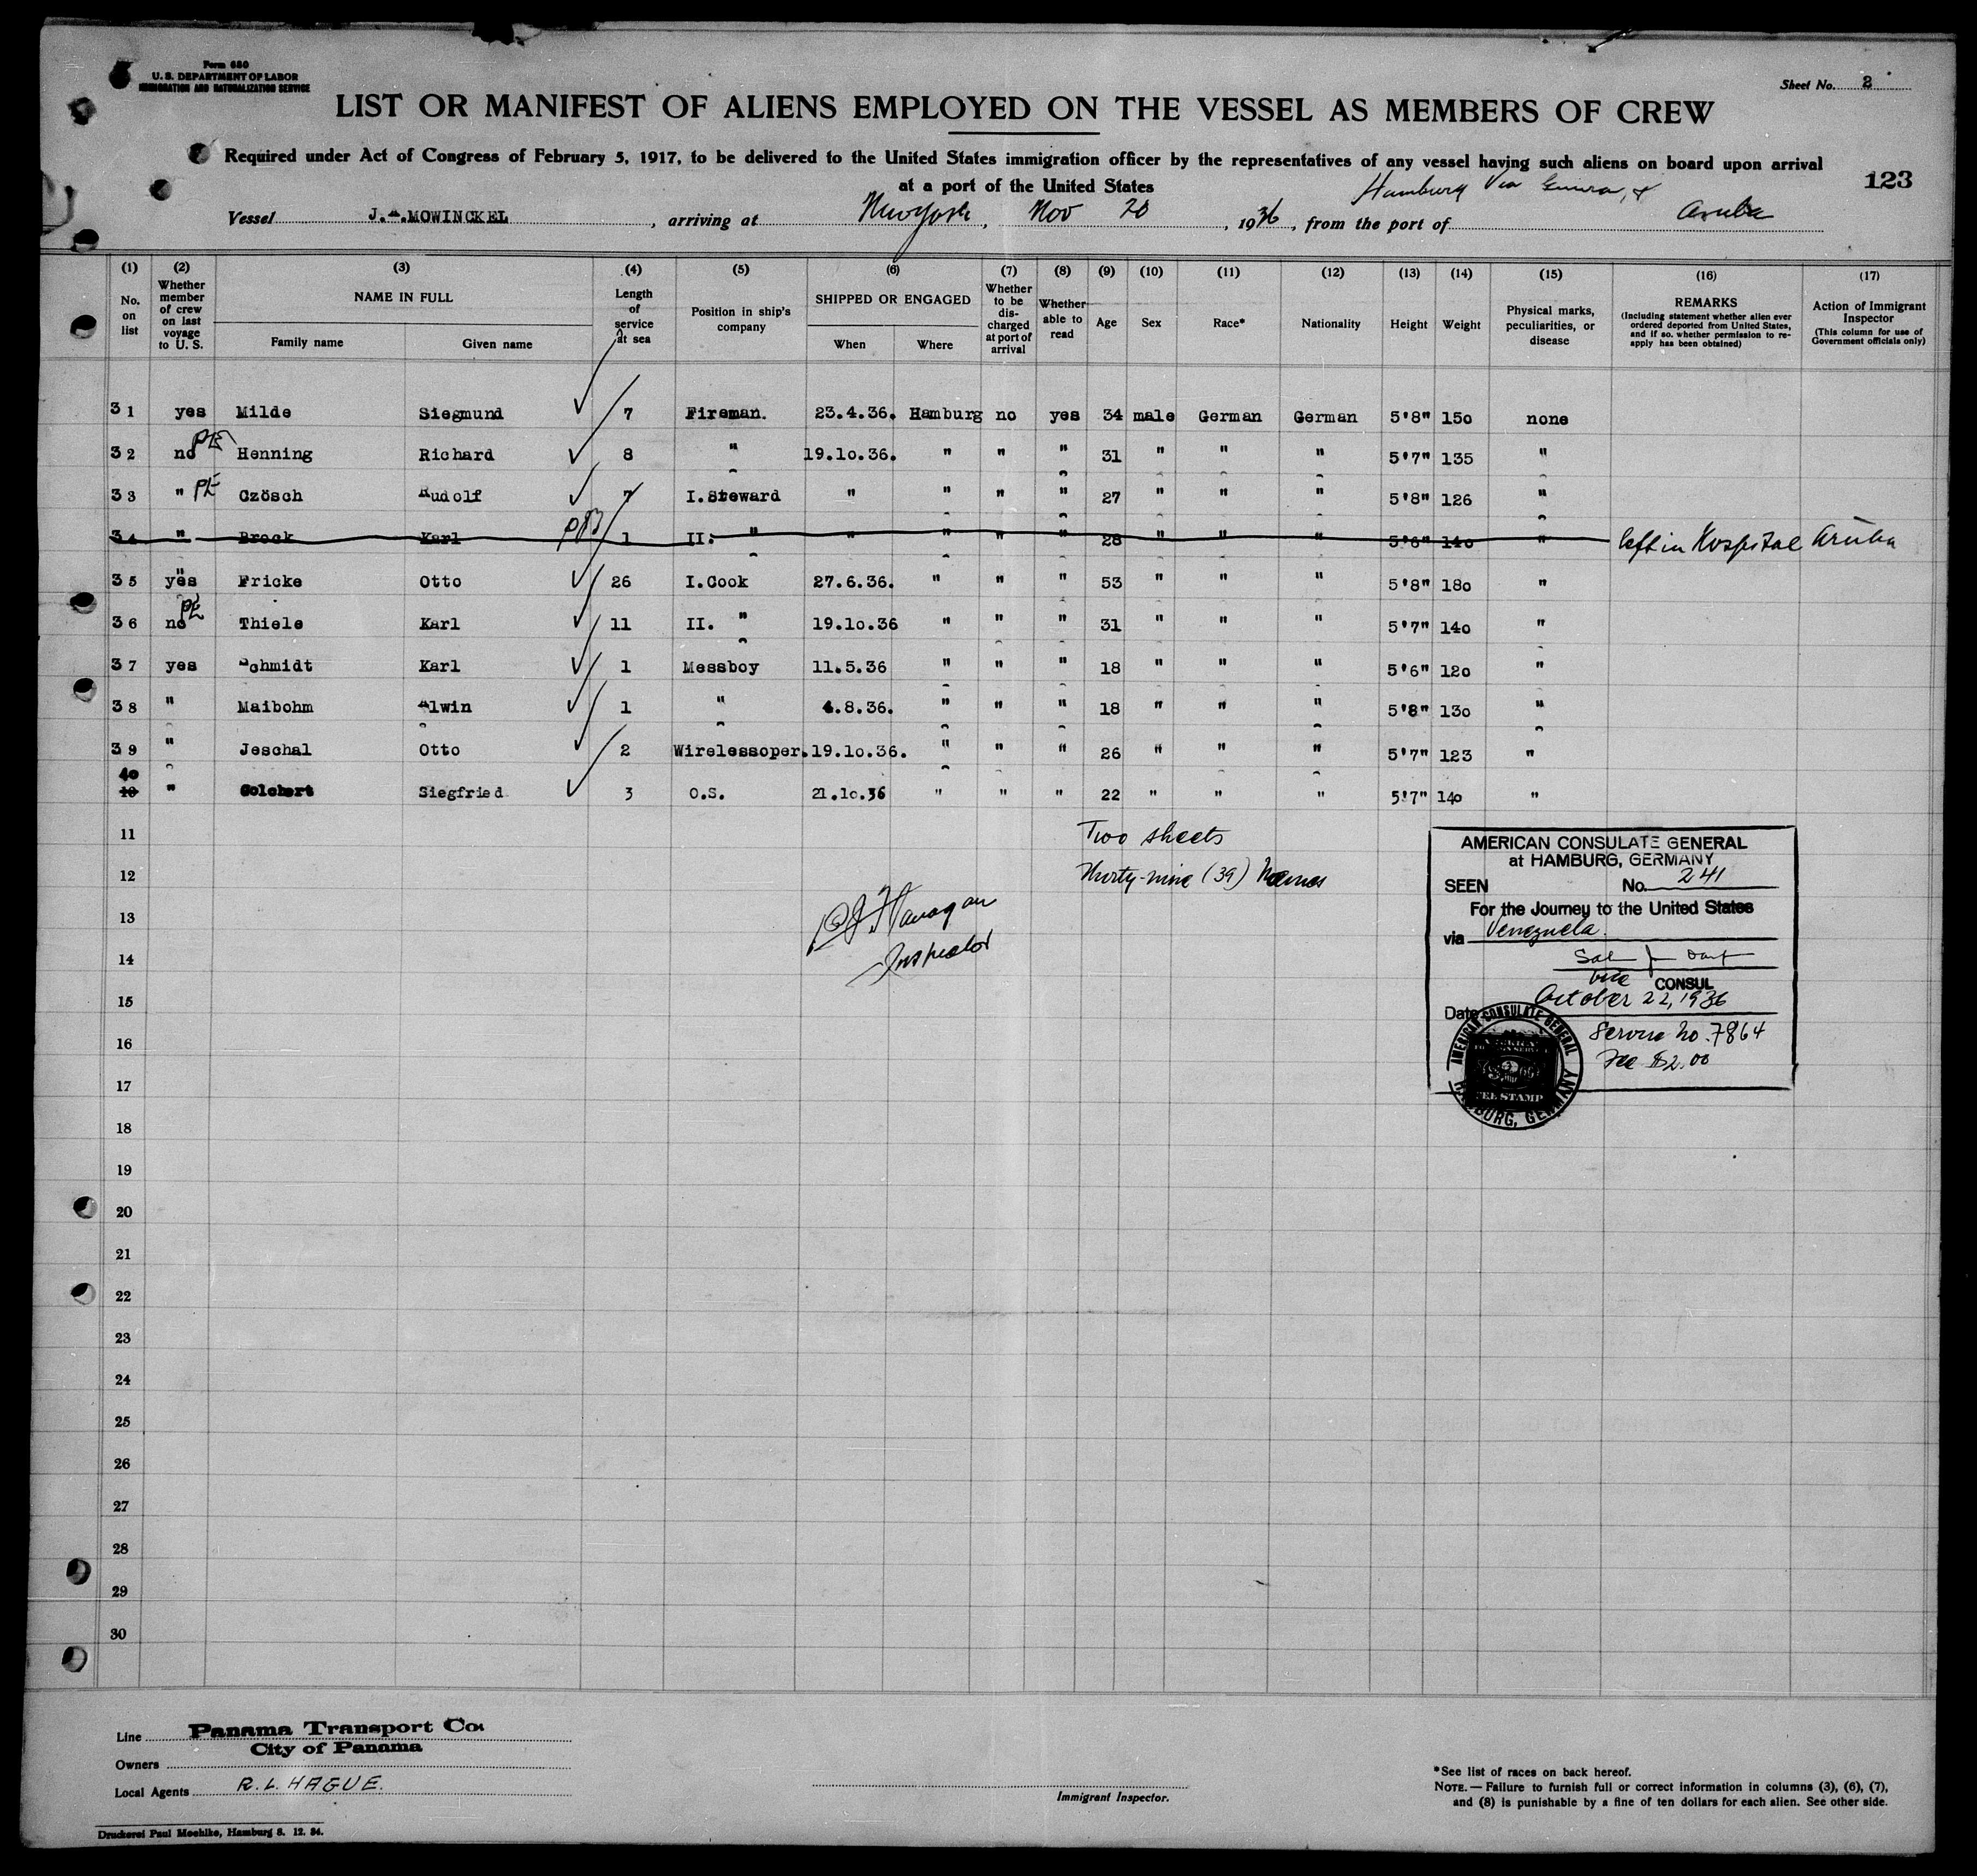 Form 680
U. S. DEPARTMENT OF LABOR
IMMIGRATION AND NATURALIZATION SERVICE
Sheet No. 2
LIST OR MANIFEST OF ALIENS EMPLOYED ON THE VESSEL AS MEMBERS OF CREW
Required under Act of Congress of February 5, 1917, to be delivered to the United States immigration officer by the representatives of any vessel having such aliens on board upon arrival
at a port of the United States
123
Hamburg Via &
Vessel J.A.MOWINCKEL, arriving at New York, Nov 20, 1936, from the port of Aruba
(1) (2) (3) (4) (5) (6) (7) (8) (9) (10) (11) (12) (13) (14) (15) (16) (17)
No. on list
Whether member of crew on last voyage to U. S.
NAME IN FULL
Family name
Given name
Length of service at sea
Position in ship's company
SHIPPED OR ENGAGED
When
Where
Whether to be discharged at port of arrival
Whether able to read
Age
Sex
Race*
Nationality
Height
Weight
Physical marks, peculiarities, or disease
REMARKS
(Including statement whether alien ever ordered deported from United States, and if so, whether permission to re-apply has been obtained)
Action of Immigrant Inspector
(This column for use of Government officials only)
31 yes Milde Siegmund 7 Fireman. 23.4.36. Hamburg no yes 34 male German German 5'8" 150 none
32 no PE Henning Richard 8 " 19.10.36. " " " 31 " " " 5'7" 135 "
33 " PE Czösch Rudolf 7 I.Steward " " " " 27 " " " 5'8" 126 "
34 " Brock Karl 1 II. " " " " " 28 " " " 5'6" 140 " left in Hospital Aruba
35 yes Fricke Otto 26 I.Cook 27.6.36. " " " 53 " " " 5'8" 180 "
36 no PE Thiele Karl 11 II. " 19.10.36 " " " 31 " " " 5'7" 140 "
37 yes Schmidt Karl 1 Messboy 11.5.36 " " " 18 " " " 5'6" 120 "
38 " Maibohm Alwin 1 " 4.8.36. " " " 18 " " " 5'8" 130 "
39 " Jeschal Otto 2 Wirelessoper. 19.10.36. " " " 26 " " " 5'7" 123 "
40 " Golchert Siegfried 3 O.S. 21.10.36 " " " 22 " " " 5'7" 140 "
10
11
Two sheets
12
Thirty-nine (39) Names
13
Flanagan
14
Inspector
15
16
17
18
19
20
21
22
23
24
25
26
27
28
29
30
AMERICAN CONSULATE GENERAL
at HAMBURG, GERMANY
SEEN No. 241
For the Journey to the United States
via Venezuela.
Vice CONSUL
Date October 22, 1936
Service No. 7864
Fee $2.00
AMERICAN CONSULATE GENERAL
HAMBURG, GERMANY
FEE STAMP
Line Panama Transport Co.
City of Panama
Owners
Local Agents R. L. HAGUE.
Immigrant Inspector.
*See list of races on back hereof.
NOTE.— Failure to furnish full or correct information in columns (3), (6), (7),
and (8) is punishable by a fine of ten dollars for each alien. See other side.
Druckerei Paul Moehlke, Hamburg 8. 12. 34.